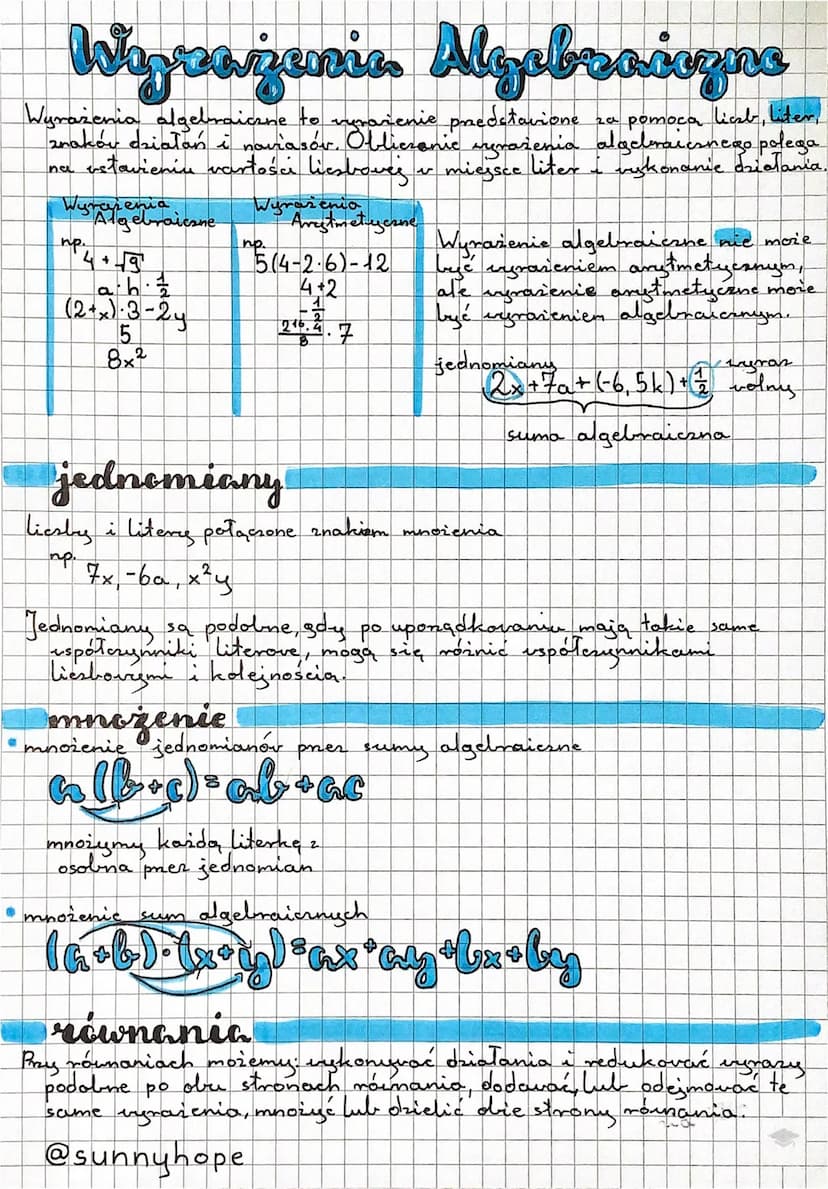 Wyrażenia Algebraiczne
Wyrażenia algebraiczne to wyrażenie przedstawione za pomocą liczb, liter,
znaków działań i nawiasów. Obliczanie wyrażenia algebraicznego polega
na wstawieniu wartości liczbowej w miejsce liter i wykonanie działania.
Wyrażenia
Algebraiczne
np.
4+√9
a·h·½
(2+x)·3-2y
5
8x²
Wyrażenia
Arytmetyczne
np.
5(4-2·6)-12
4+2
-½
216·4/8 · 7
Wyrażenie algebraiczne nie może
być wyrażeniem arytmetycznym,
ale wyrażenie arytmetyczne może
być wyrażeniem algebraicznym.
jednomiany
2x+7a+(-6,5k)+½
wyraz
wolny
suma algebraiczna
jednomiany
liczby i litery połączone znakiem mnożenia
np.
7x, -6a, x²y
Jednomiany są podobne, gdy po uporządkowaniu mają takie same
współczynniki literowe, mogą się różnić współczynnikami
liczbowymi i kolejnością.
mnożenie
• mnożenie jednomianów przez sumy algebraiczne
a(b+c)=ab+ac
mnożymy każdą literkę z
osobna przez jednomian
• mnożenie sum algebraicznych
(a+b)·(x+y)=ax+ay+bx+by
równania
Przy równaniach możemy: wykonywać działania i redukować wyrazy
podobne po obu stronach równania, dodawać, lub odejmować te
same wyrażenia, mnożyć lub dzielić obie strony równania.
@sunnyhope